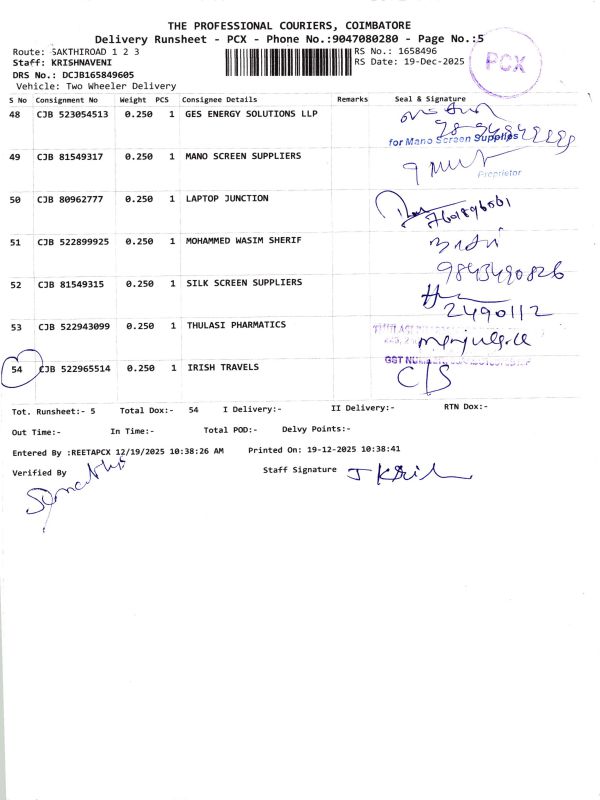 THE PROFESSIONAL COURIERS, COIMBATORE
Delivery Runsheet - PCX - Phone No.:9047080280 - Page No.:5
Route: SAKTHIROAD 1 2 3
RS No.: 1658496
Staff: KRISHNAVENI
RS Date: 19-Dec-2025
PCX
DRS No.: DCJB165849605
Vehicle: Two Wheeler Delivery
S No Consignment No Weight PCS Consignee Details Remarks Seal & Signature
48 CJB 523054513 0.250 1 GES ENERGY SOLUTIONS LLP
for Mano Screen Supplies
49 CJB 81549317 0.250 1 MANO SCREEN SUPPLIERS
Proprietor
50 CJB 80962777 0.250 1 LAPTOP JUNCTION
51 CJB 522899925 0.250 1 MOHAMMED WASIM SHERIF
9843490826
52 CJB 81549315 0.250 1 SILK SCREEN SUPPLIERS
2490112
53 CJB 522943099 0.250 1 THULASI PHARMATICS
54 CJB 522965514 0.250 1 IRISH TRAVELS
C/S
Tot. Runsheet:- 5 Total Dox:- 54 I Delivery:- II Delivery:- RTN Dox:-
Out Time:- In Time:- Total POD:- Delvy Points:-
Entered By :REETAPCX 12/19/2025 10:38:26 AM Printed On: 19-12-2025 10:38:41
Verified By Staff Signature